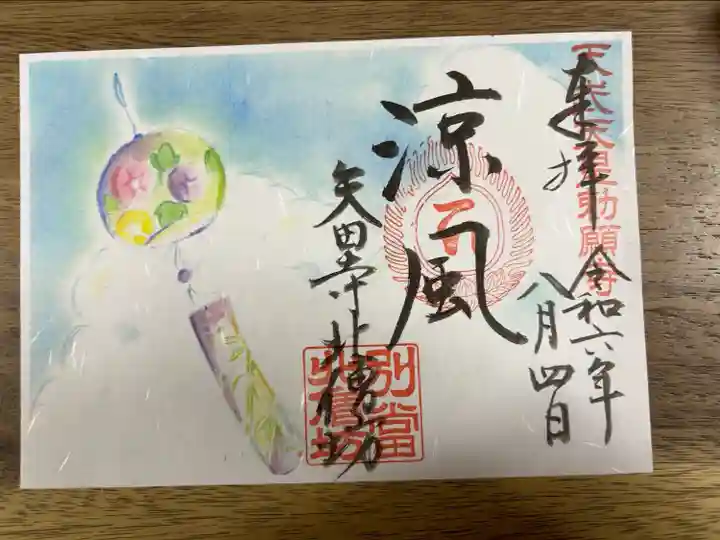 天武天皇勅願寺
奉拝 令和六年
八月四日
涼風
矢田寺北僧坊
別當
北僧坊